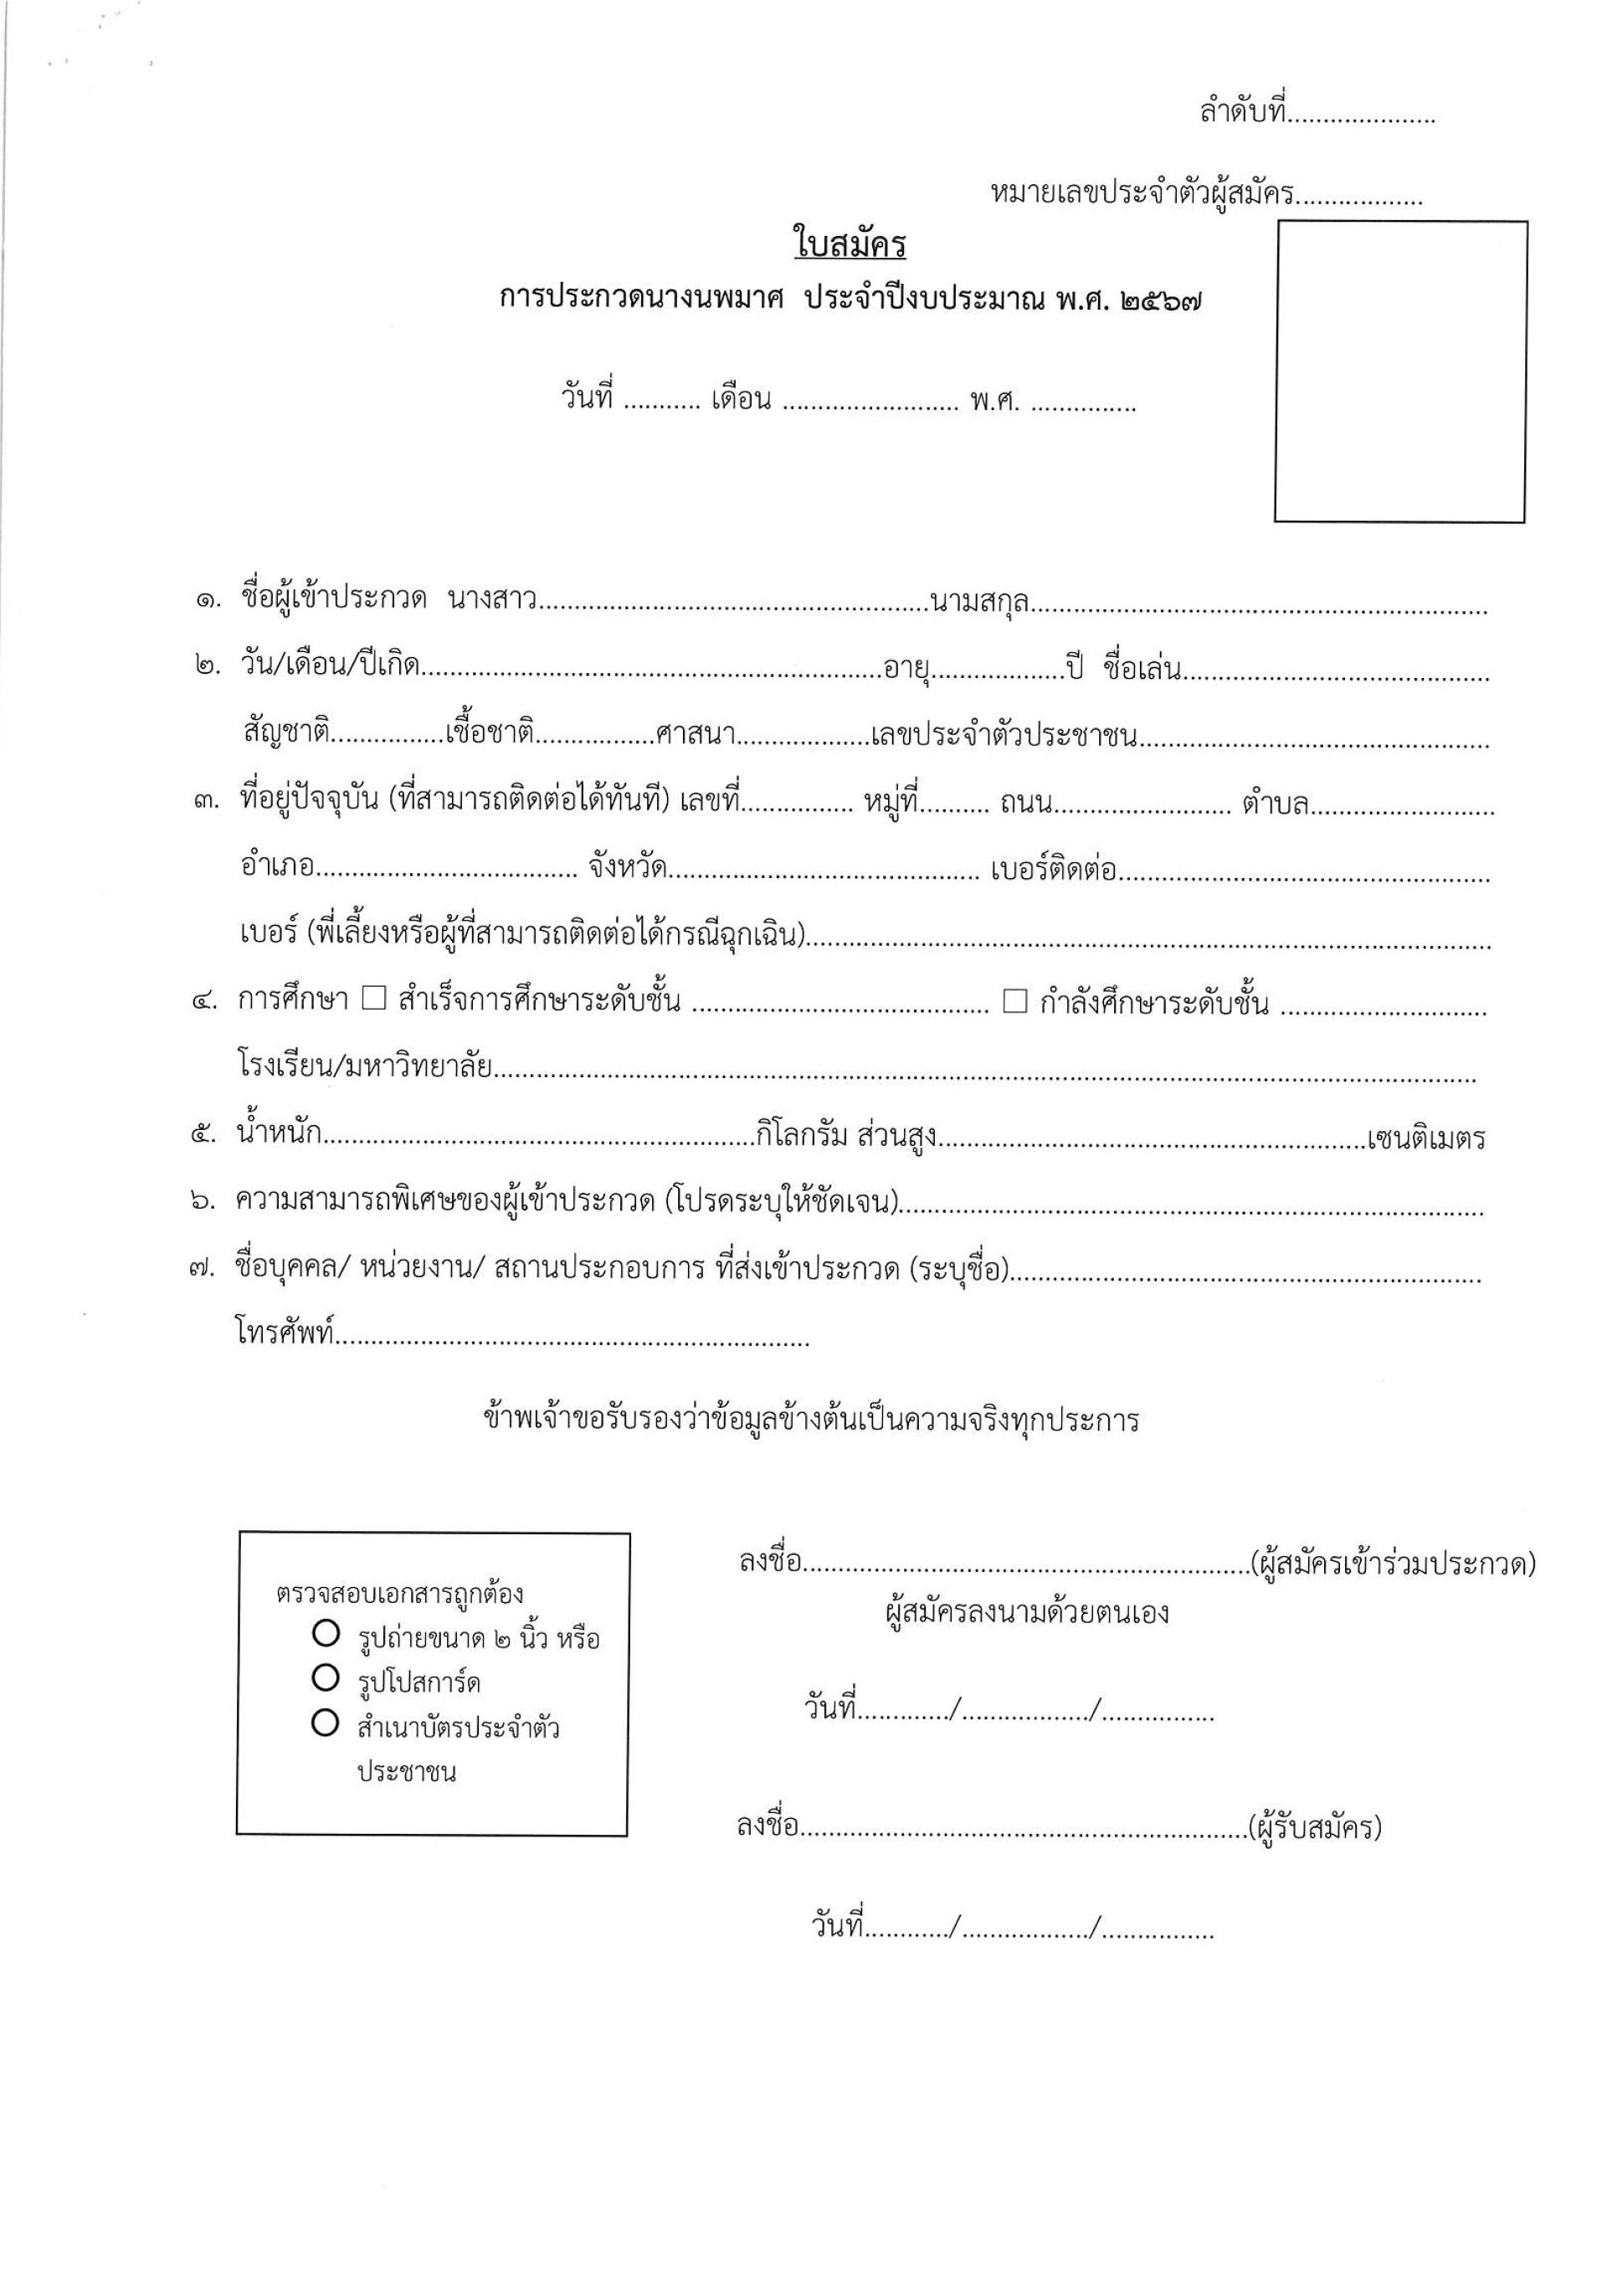 ลำดับที่.....................
หมายเลขประจำตัวผู้สมัคร..................
ใบสมัคร
การประกวดนางนพมาศ ประจำปีงบประมาณ พ.ศ. ๒๕๖๗
วันที่ ........... เดือน ......................... พ.ศ. ...............
๑. ชื่อผู้เข้าประกวด นางสาว.......................................................นามสกุล.................................................................
๒. วัน/เดือน/ปีเกิด.................................................................อายุ...................ปี ชื่อเล่น...........................................
สัญชาติ................เชื้อชาติ.................ศาสนา...................เลขประจำตัวประชาชน.................................................
๓. ที่อยู่ปัจจุบัน (ที่สามารถติดต่อได้ทันที) เลขที่................ หมู่ที่.......... ถนน......................... ตำบล..........................
อำเภอ..................................... จังหวัด............................................ เบอร์ติดต่อ.....................................................
เบอร์ (พี่เลี้ยงหรือผู้ที่สามารถติดต่อได้กรณีฉุกเฉิน).................................................................................................
๔. การศึกษา ☐ สำเร็จการศึกษาระดับชั้น .......................................... ☐ กำลังศึกษาระดับชั้น .............................
โรงเรียน/มหาวิทยาลัย...........................................................................................................................................
๕. น้ำหนัก.............................................................กิโลกรัม ส่วนสูง............................................................เซนติเมตร
๖. ความสามารถพิเศษของผู้เข้าประกวด (โปรดระบุให้ชัดเจน)...................................................................................
๗. ชื่อบุคคล/ หน่วยงาน/ สถานประกอบการ ที่ส่งเข้าประกวด (ระบุชื่อ)...................................................................
โทรศัพท์...................................................................
ข้าพเจ้าขอรับรองว่าข้อมูลข้างต้นเป็นความจริงทุกประการ
ตรวจสอบเอกสารถูกต้อง
รูปถ่ายขนาด ๒ นิ้ว หรือ
รูปโปสการ์ด
สำเนาบัตรประจำตัว
ประชาชน
ลงชื่อ...............................................................(ผู้สมัครเข้าร่วมประกวด)
ผู้สมัครลงนามด้วยตนเอง
วันที่............./................../................
ลงชื่อ...............................................................(ผู้รับสมัคร)
วันที่............/................../................